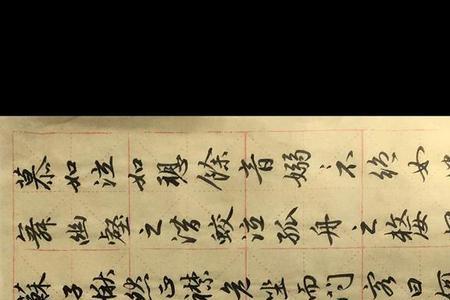 慕如泣如訴餘音嫋不絕如
舞幽壑之潛蛟泣孤舟之嫠
蘇子愀然正襟危坐而問客曰何